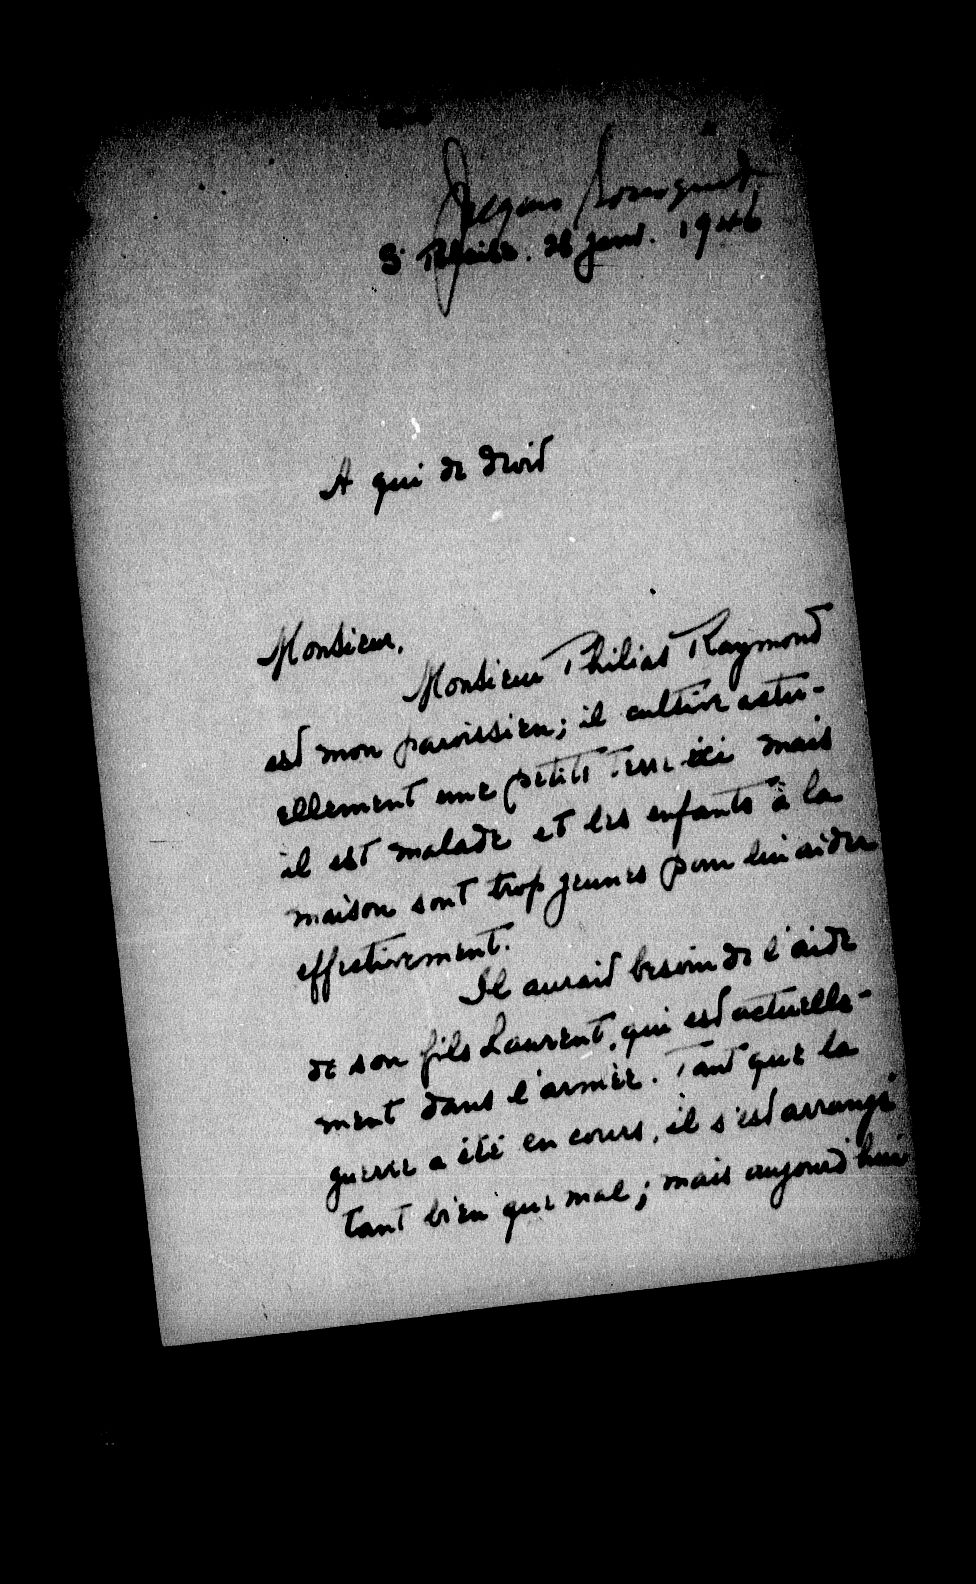 Jacques
S. 26 janv. 1946
A qui de droit
Monsieur,
Monsieur Philias Raymond
est mon paroissien; il cultive actu-
ellement une petite terre ici mais
il est malade et les enfants à la
maison sont trop jeunes pour lui aider
effectivement.
Il aurait besoin de l'aide
de son fils Laurent, qui est actuelle-
ment dans l'armée. Tant que la
guerre a été en cours, il s'est arrangé
tant bien que mal; mais aujourd'hui